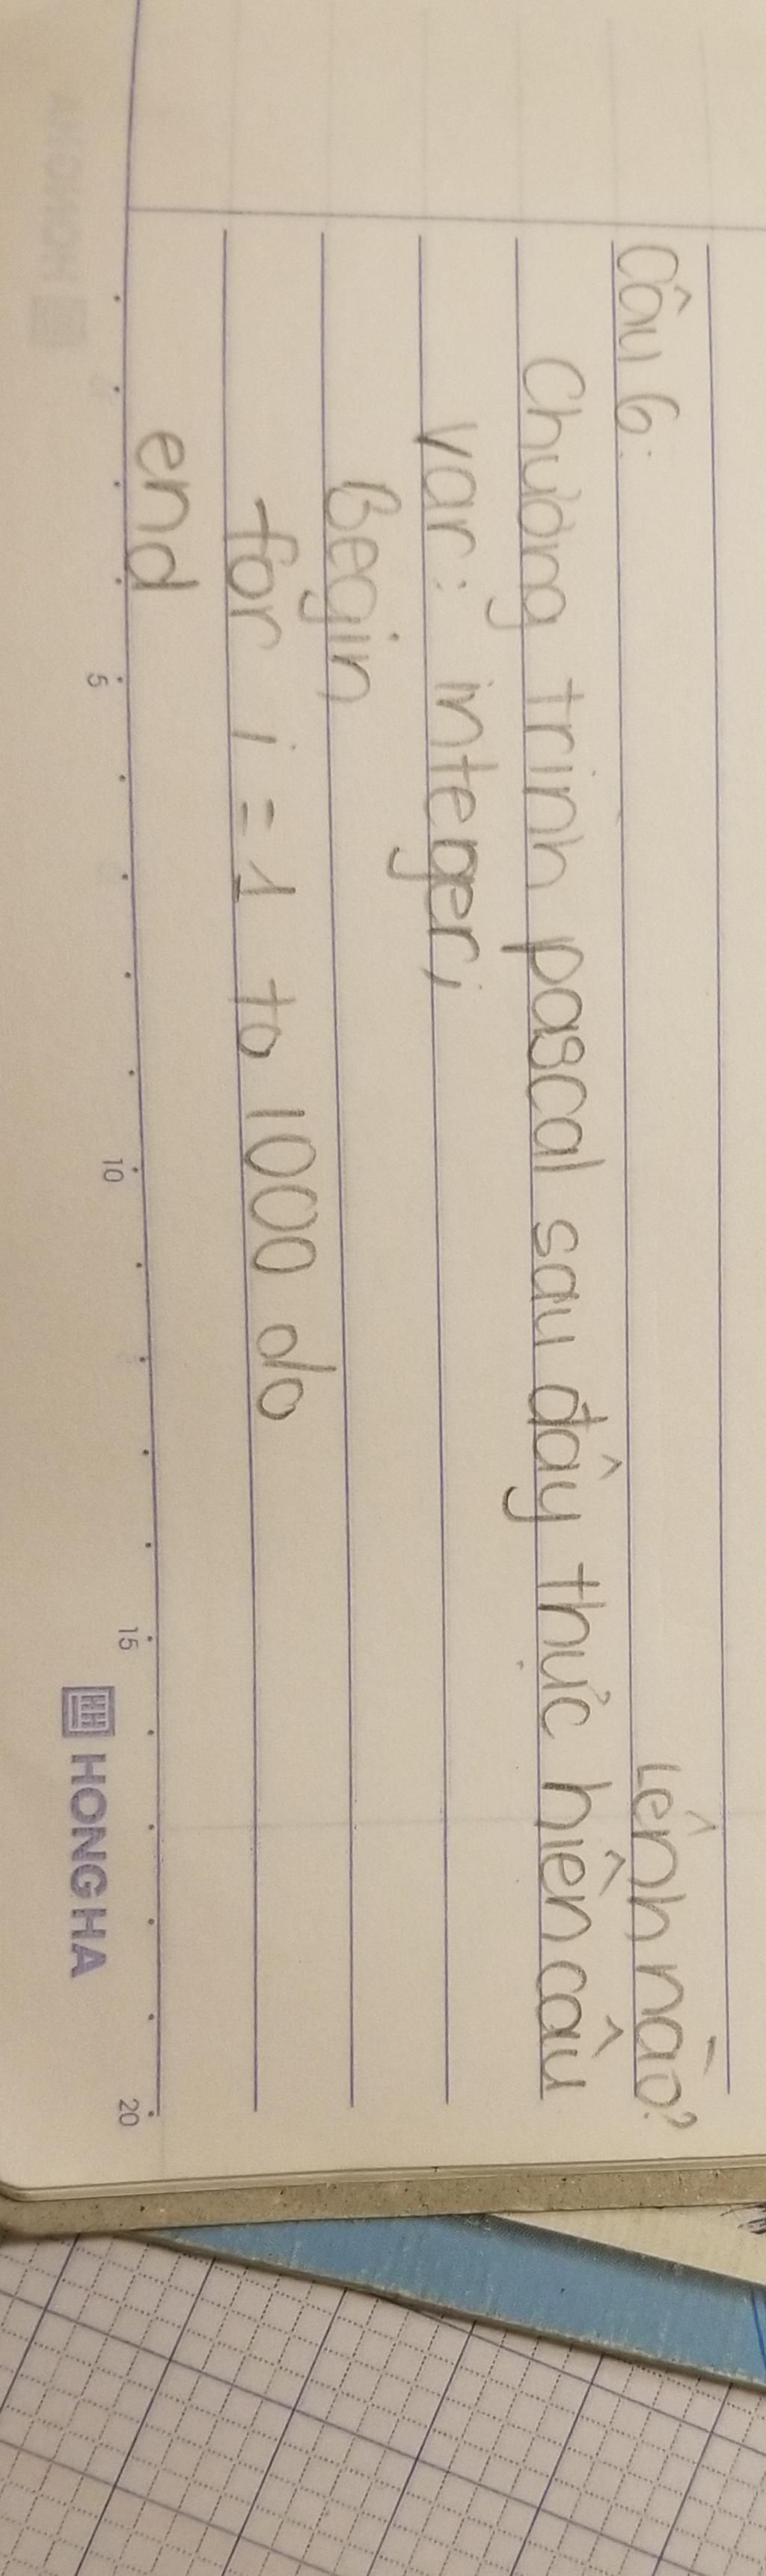 Câu 6:
Lệnh nào?
Chương trình pascal sau đây thực hiên câu
var: integer;
Begin
for i = 1 to 1000 do
end
5 10 15 20
HONG HA